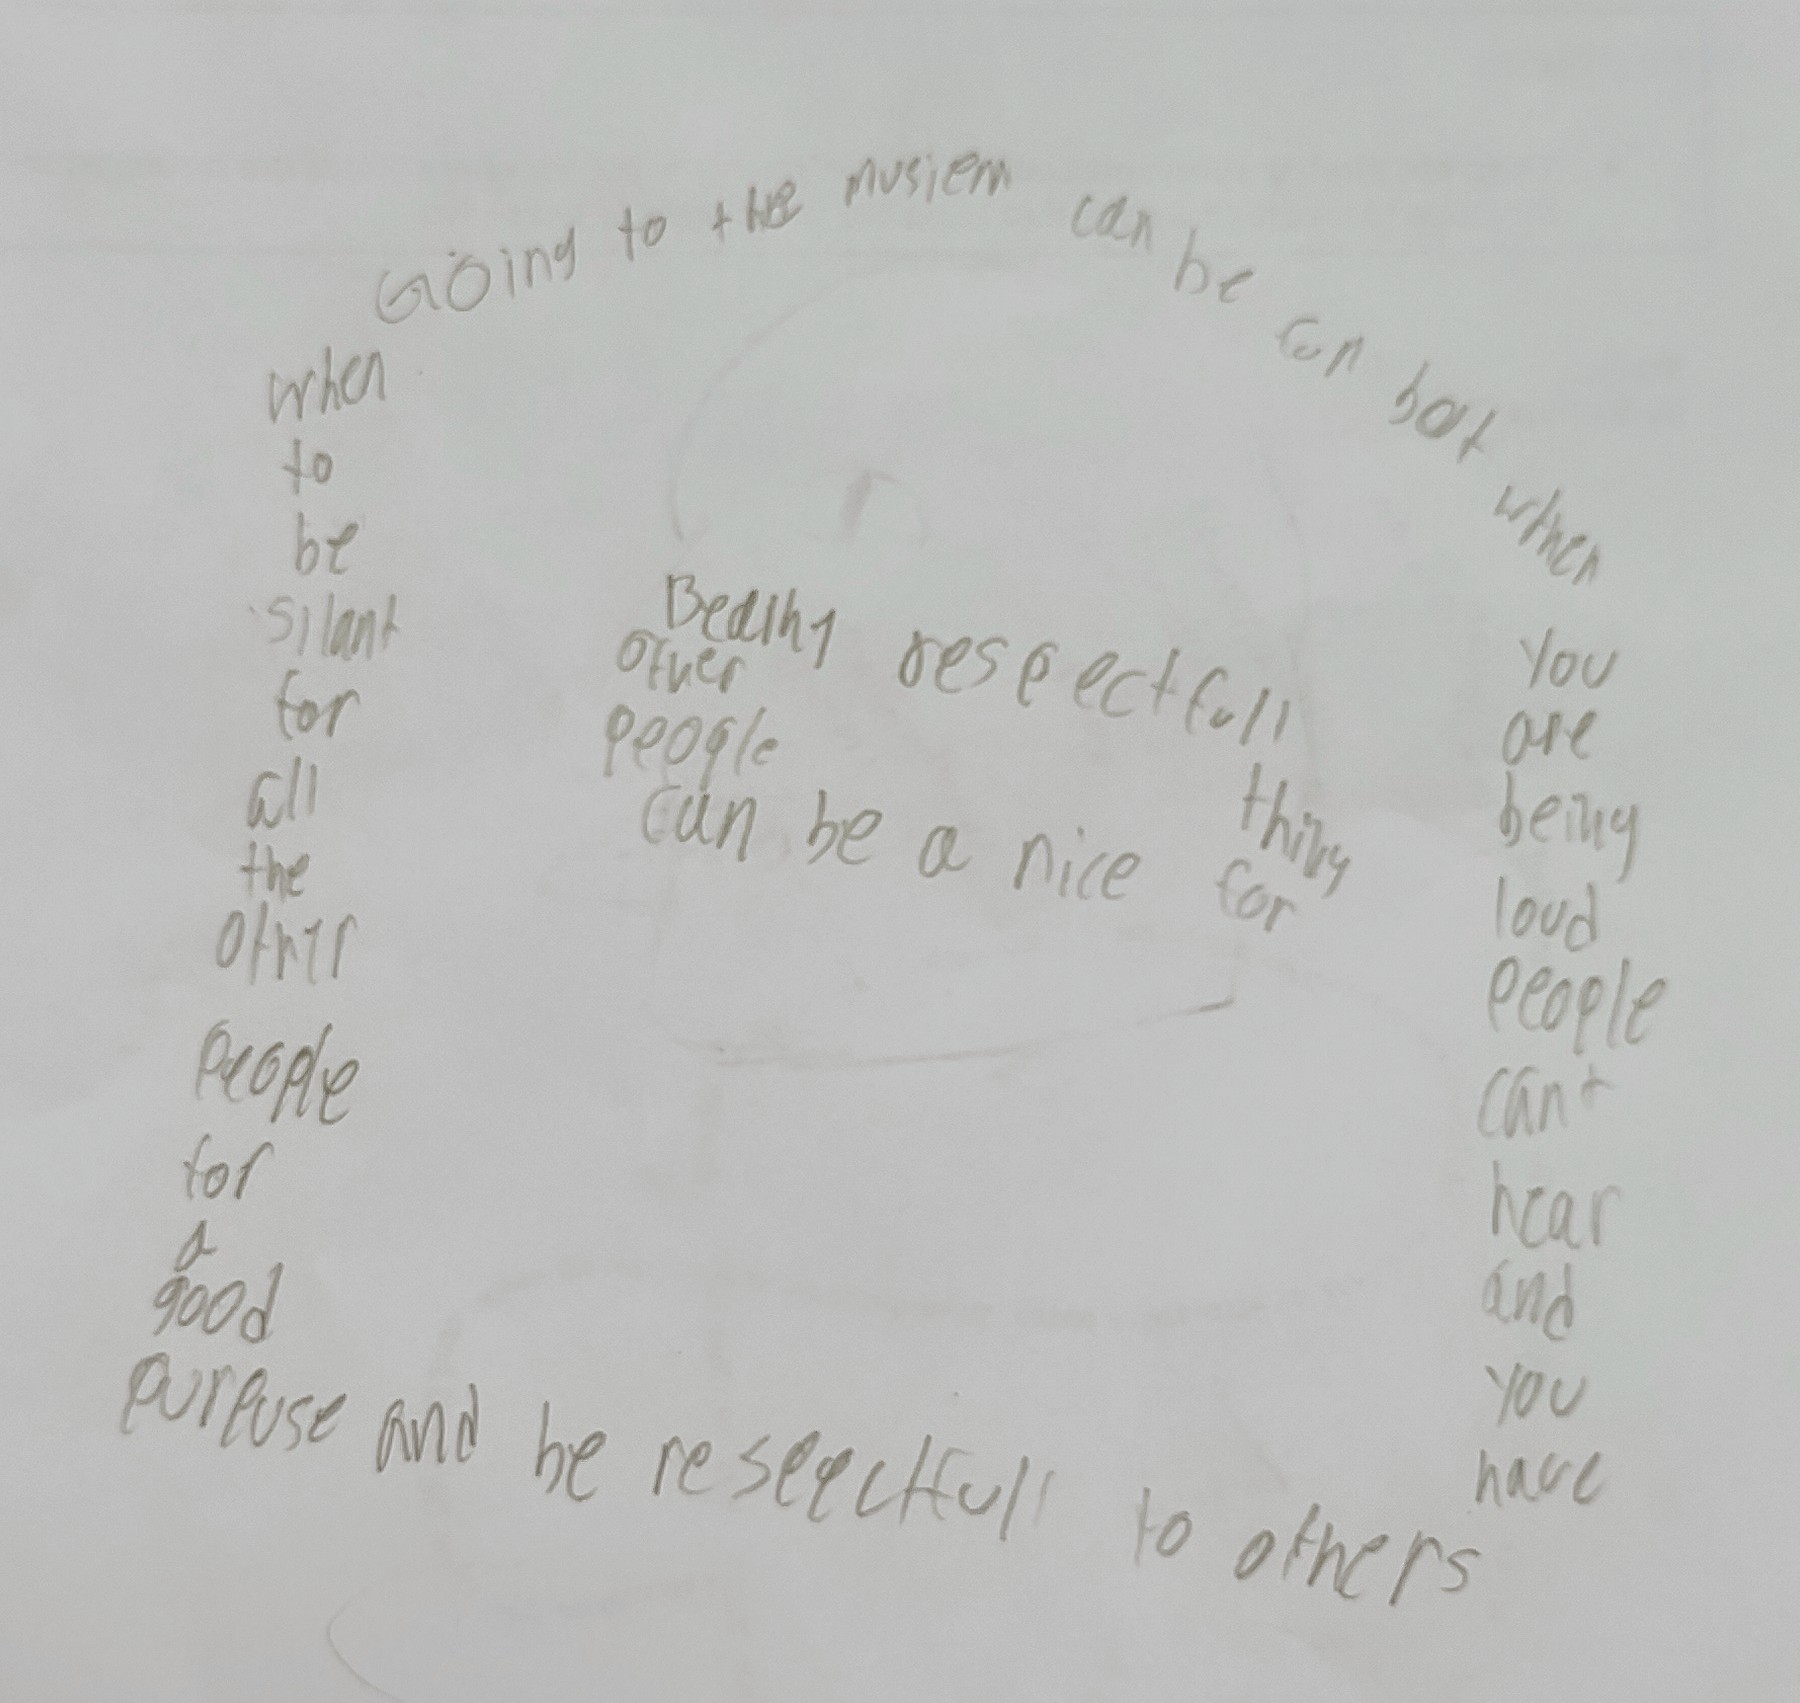 Going to the musiem can be fun bot when
you
are
being
loud
people
can't
hear
and
you
have
when
to
be
silant
for
all
the
other
people
for
a
good
purpuse and be respectfull to others
Beaing respectfull
thing
for
other
people
can be a nice